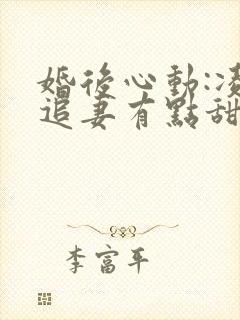 婚後心動:凌
追妻有點甜
李富平